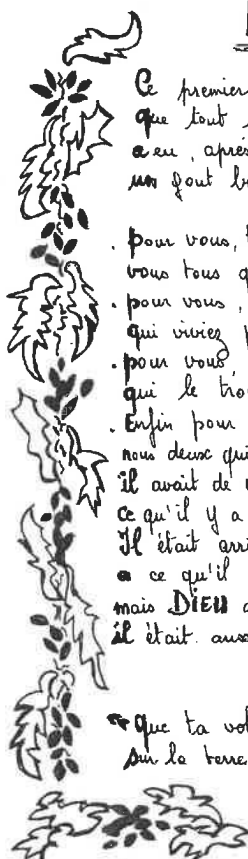 Ce premier
que tout
a eu, après
un gout b
. pour vous,
vous tous q
. pour vous,
qui viviez
. pour vous
qui le trou
. Enfin pour
nous deux qui
il avait de
ce qu'il y a
Il était arri
a ce qu'il
mais DIEU a
il était auss
que ta vol
sur la terre